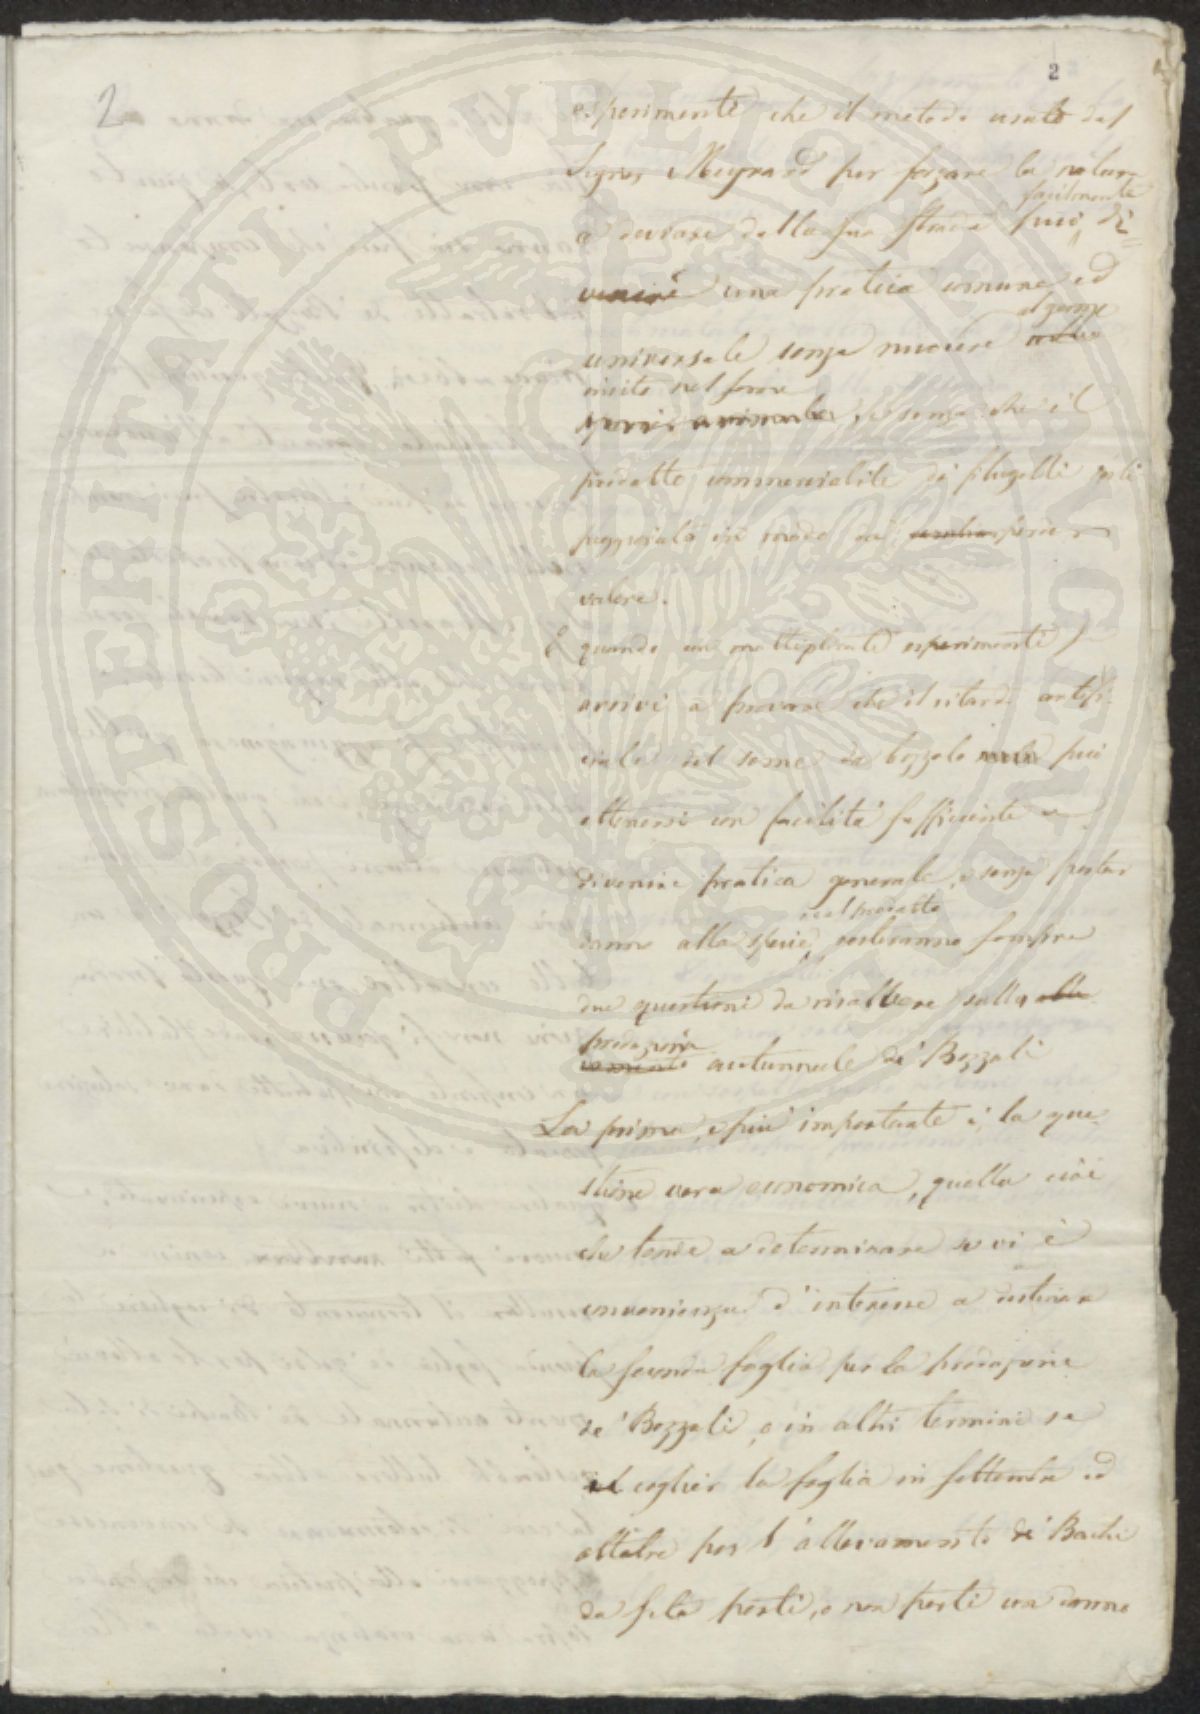 2
2
esperimenti che il metodo usato dal
Signor Meynard per forzare la natura
facilmente
a deviare dalla sua strada può di=
venire una pratica comune ed
al germe
universale senza nuocere
insito nel seme
specie animale, e senza che il
prodotto commerciabile di filugelli resti
peggiorato in modo da perder
valore.
E quando con moltiplicati esperimenti s'
arrivi a provare che il ritardo artifi-
ciale del seme da bozzolo può
ottenersi con facilità sufficiente a
divenire pratica generale, e senza portar
nel prodotto
danno alla specie, resteranno sempre
due questioni da risolvere sulla
produzione
autunnale de' Bozzoli
La prima, e più importante è, la que-
stione vera economica, quella cioè
che tende a determinare se vi è
convenienza d'interesse a destinare
la seconda foglia per la produzione
de' Bozzoli, o in altri termini se
il coglier la foglia in settembre ed
ottobre per l'allevamento de' Bachi
da seta porti, o non porti con danno
PROSPERITATI PUBLICAE AUGENDAE